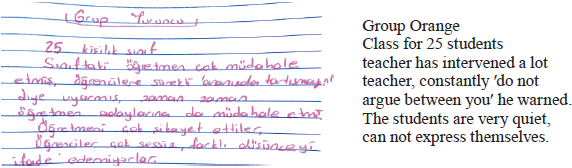 (Grup Turuncu)
25 kişilik sınıf
Sınıftaki öğretmen çok müdahale
etmiş, öğrencilere sürekli 'aranızda tartışmayın'
diye uyarmış, zaman zaman
öğretmen adaylarına da müdahale etmiş
Öğretmeni çok şikayet ettiler,
Öğrenciler çok sessiz, farklı düşünceyi
ifade edemiyorlar.
Group Orange
Class for 25 students
teacher has intervened a lot
teacher, constantly 'do not
argue between you' he warned.
The students are very quiet,
can not express themselves.